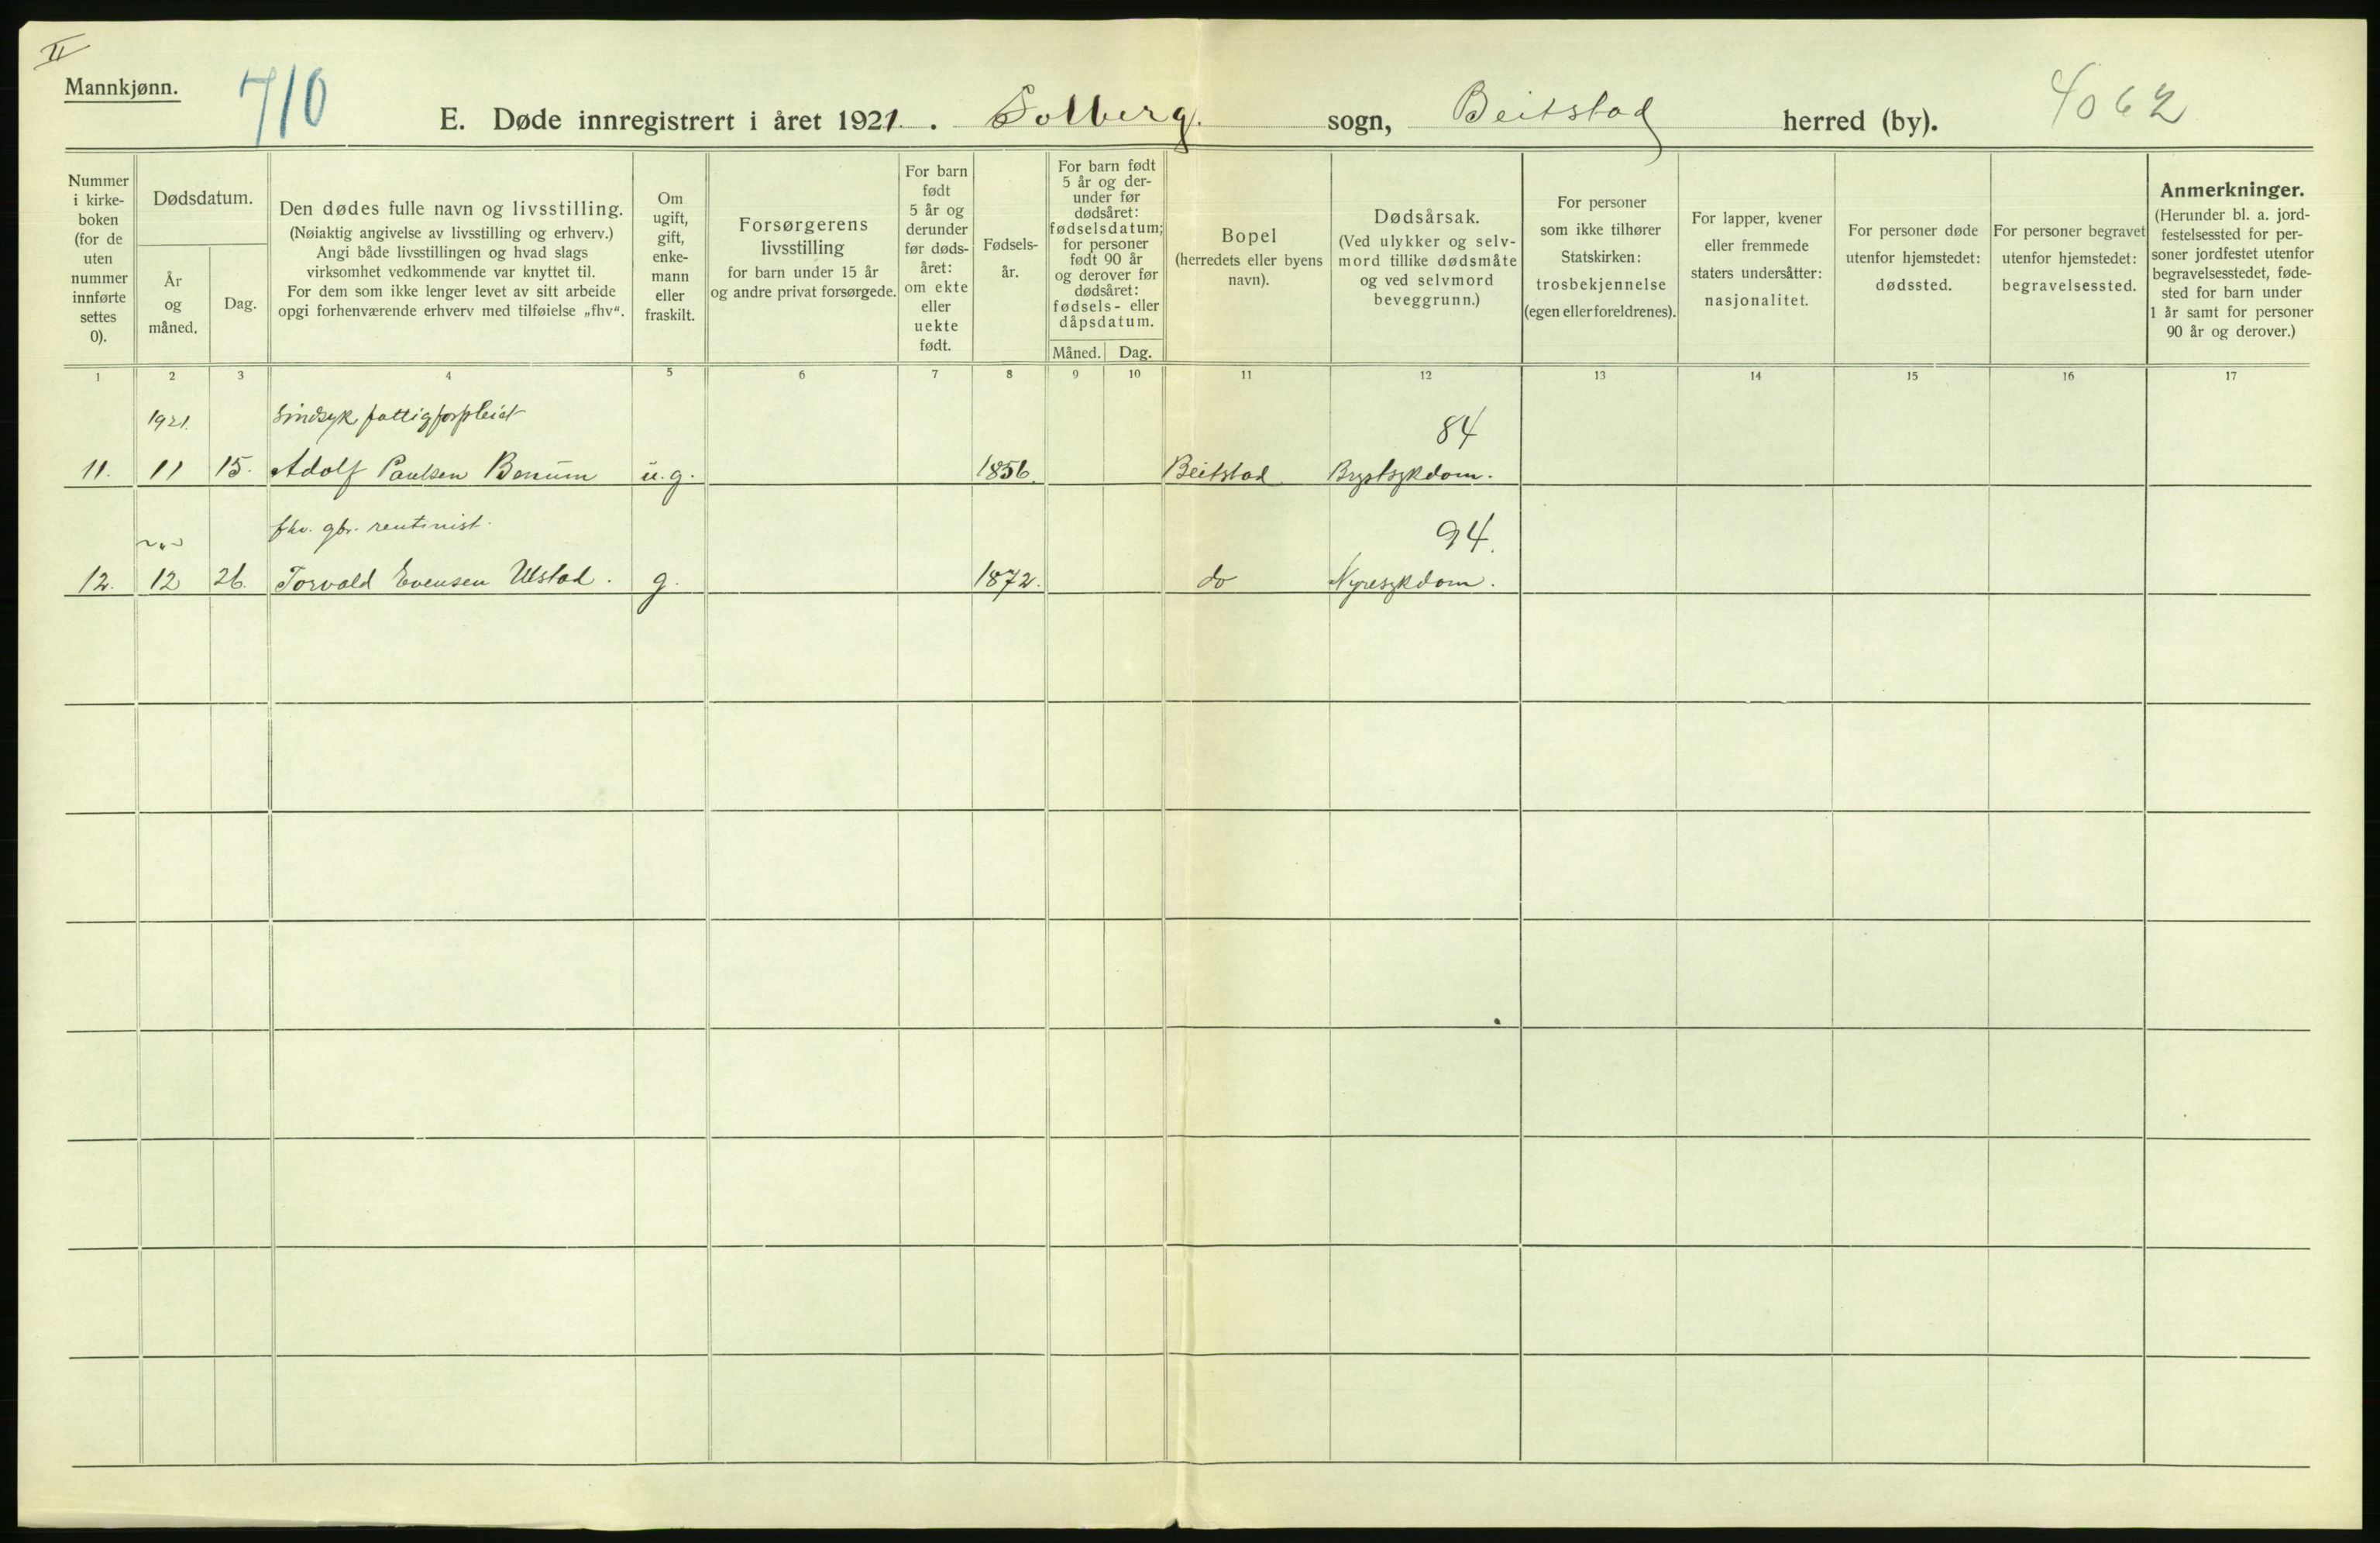 II
Mannkjønn.
710
E. Døde innregistrert i året 1921. Solberg. sogn, Beitstad herred (by).
4062
Nummer i kirkeboken (for de uten nummer innførte settes 0).
Dødsdatum.
År og måned.
Dag.
Den dødes fulle navn og livsstilling.
(Nøiaktig angivelse av livsstilling og erhverv.)
Angi både livsstillingen og hvad slags
virksomhet vedkommende var knyttet til.
For dem som ikke lenger levet av sitt arbeide
opgi forhenværende erhverv med tilføielse „fhv“.
Om ugift, gift, enkemann eller fraskilt.
Forsørgerens
livsstilling
for barn under 15 år
og andre privat forsørgede.
For barn født 5 år og derunder før dødsåret: om ekte eller uekte født.
Fødselsår.
For barn født 5 år og derunder før dødsåret: fødselsdatum; for personer født 90 år og derover før dødsåret: fødsels- eller dåpsdatum.
Måned. Dag.
Bopel
(herredets eller byens
navn).
Dødsårsak.
(Ved ulykker og selv-
mord tillike dødsmåte
og ved selvmord
beveggrunn.)
For personer
som ikke tilhører
Statskirken:
trosbekjennelse
(egen eller foreldrenes).
For lapper, kvener
eller fremmede
staters undersåtter:
nasjonalitet.
For personer døde
utenfor hjemstedet:
dødssted.
For personer begravet
utenfor hjemstedet:
begravelsessted.
Anmerkninger.
(Herunder bl. a. jord-
festelsessted for per-
soner jordfestet utenfor
begravelsesstedet, føde-
sted for barn under
1 år samt for personer
90 år og derover.)
1 2 3 4 5 6 7 8 9 10 11 12 13 14 15 16 17
1921. Sindsyk fattigforpleiet 84
11. 11 15. Adolf Paulsen Bonum u.g. 1856. Beitstad. Brystsykdom.
" fhv. gbr. rentenist. 94.
12. 12 26. Torvald Evensen Ulstad. g. 1872. do Nyresykdom.